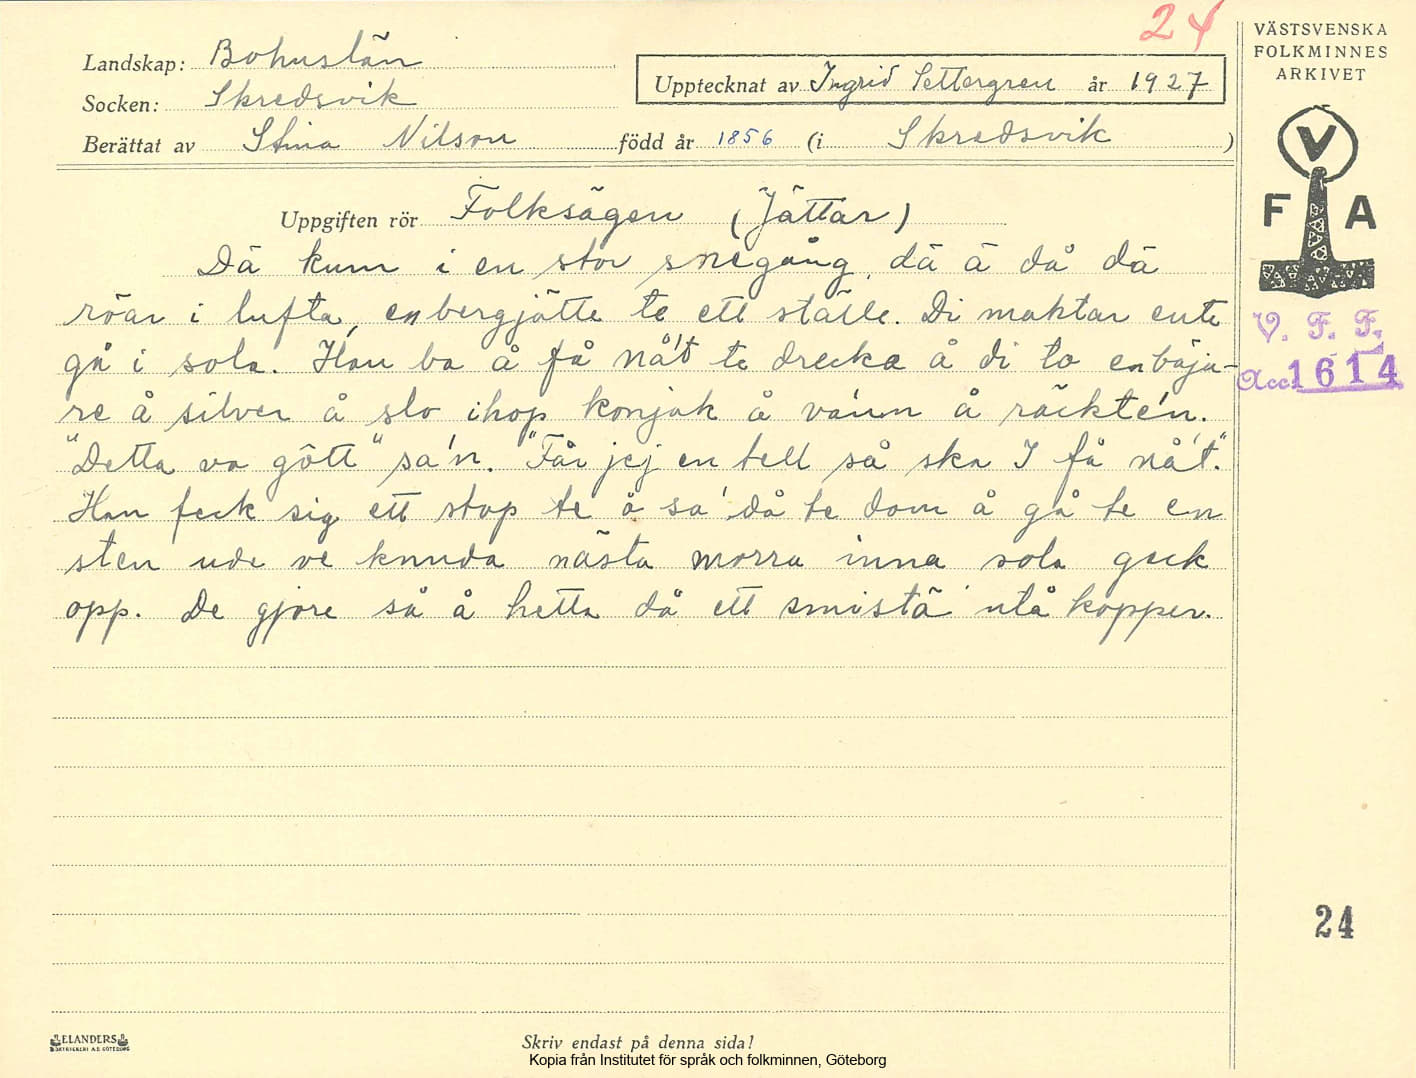 24
VÄSTSVENSKA
FOLKMINNES
ARKIVET
Landskap: Bohuslän
Upptecknat av Ingrid Settergren år 1927
Socken: Skredsvik
Berättat av Stina Nilson född år 1856 (i Skredsvik )
V
F A
Uppgiften rör Folksägen (Jättar)
Dä kum i en stor snegång, dä ä då dä
röar i lufta, en bergjätte te ett ställe. Di maktar ente
gå i sola. Han ba å få nå't te drecka å di to en bäja-
re å silver å slo ihop konjak å va'nn å räckte'n.
"Detta va gött" sa'n. "Får jej en tell så ska I få nå't".
Han feck sig ett stop te å sa' då te dom å gå te en
sten ude ve knuda nästa morra inna sola geck
opp. De gjore så å hetta då ett smistä utå kopper.
V. F. F.
Acc. 1614
24
ELANDERS
BOKTRYCKERI A.B. GÖTEBORG
Skriv endast på denna sida!
Kopia från Institutet för språk och folkminnen, Göteborg